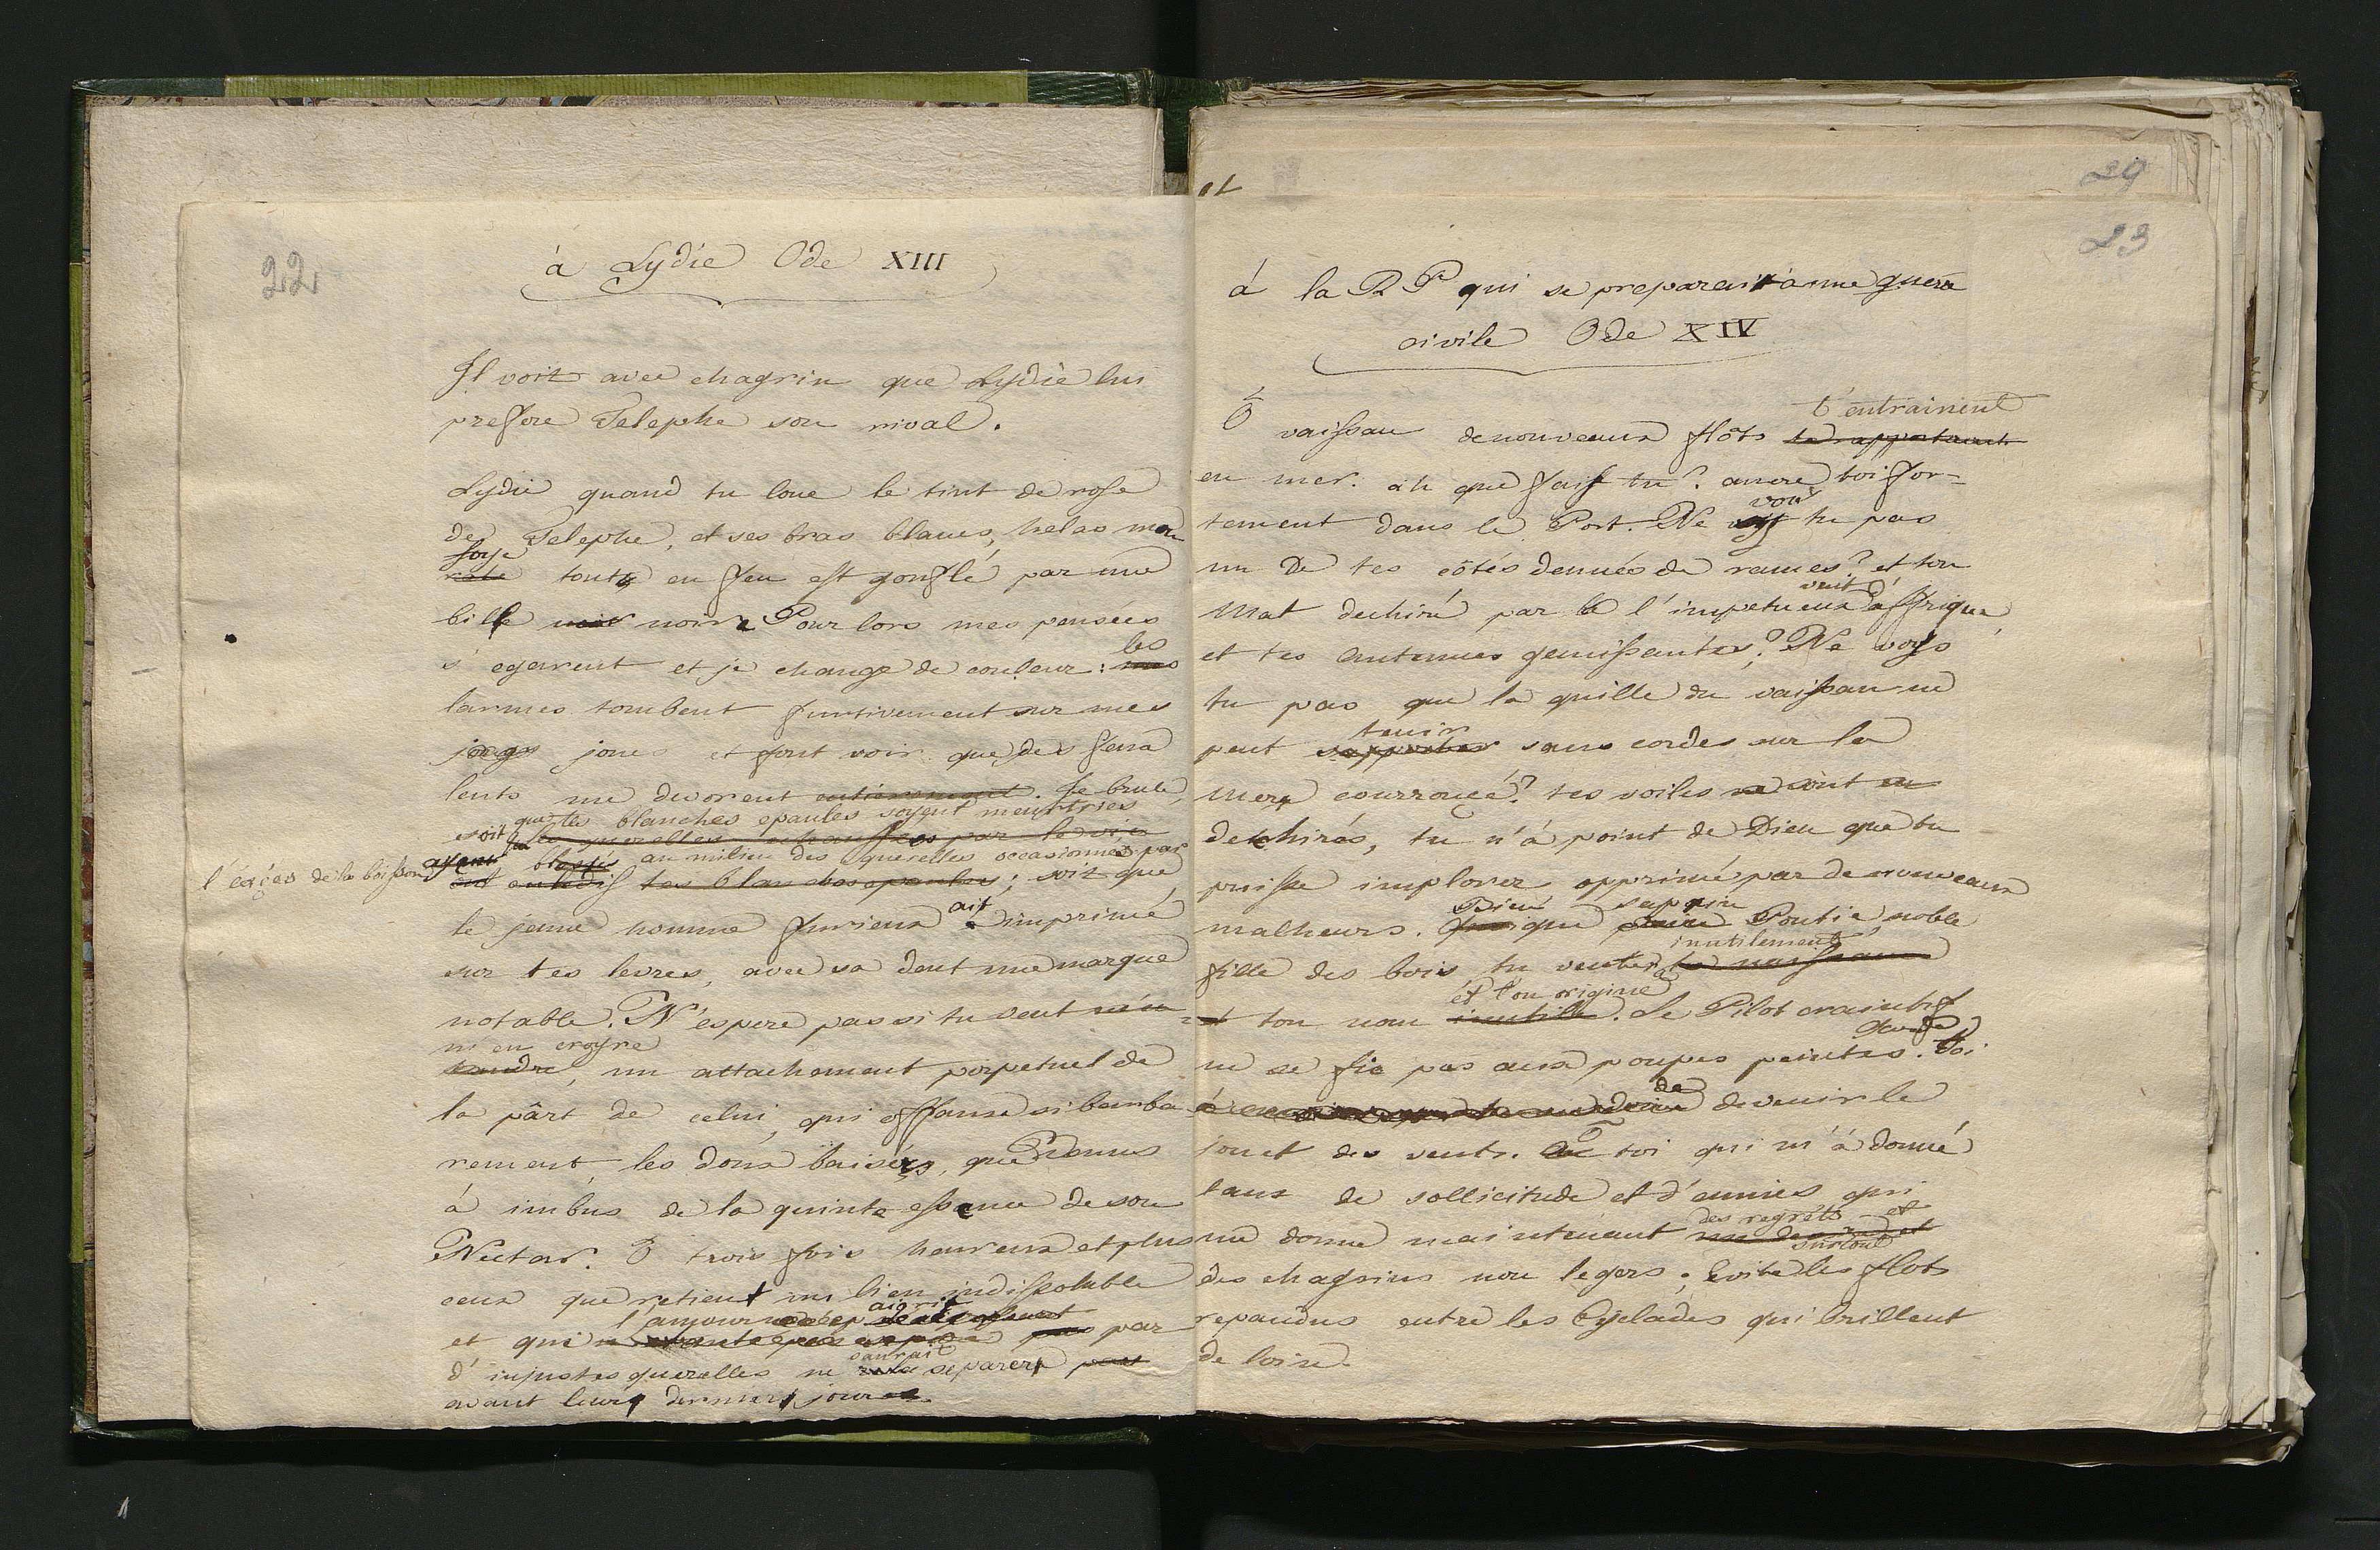 22
à Lydie Ode XIII
Il voit avec chagrin que Lydie lui
prefere Telephe son rival.
Lydie quand tu loue le tint de rose
de Telephe, et ses bras blancs, helas mon
foye
tout en feu est gonflé par une
bile noire Pour lors mes pensées
les
s'egarent et je change de couleur : mes
larmes tombent furtivement sur mes
joues et font voir que des feux
lents me devorent entierement. Je brule,
que tes blanches epaules soyent meurtries
soit les querelles echauffées par le vin
blessés au milieu des querelles occasionnes par
l'excès de la boisson ayent
ont tes blanches epaules; soit que
le jeune homme furieux ait imprimé
sur tes levres, avec sa dent une marque
notable. N'espere pas si tu veut m'en-
m'en croyre
tendre, un attachement perpetuel de
la pârt de celui, qui offense si barba
rement, les doux baisers, que Venus
à imbus de la quinte essence de son
Nectar. Ô trois fois heureux et plus
ceux que retient un lien indissoluble
aigrit
et qui l'amour par
saurait
d'injustes querelles ne separer pas
avant leur dernier jour
et
29
23
á la R P qui se preparait à une guerre
civile Ode XIV
t'entrainent
Ô vaissau de nouveaux flôts te rapportent
en mer. ah que fais tu? ancre toi for-
voi
tement dans le Port. Ne tu pas
un De tes côtés denués de rames? et ton
vent
Mat dechiré par le l'impetueux d'affrique
et tes antennes gemissantes? Ne voys
tu pas que la quille du vaissau ne
tenir
peut supporter sans cordes sur la
mere courroucé? tes voiles sont
dechirés, tu n'à point de Dieu que tu
puisse implorer opprimé par de nouveaux
Bien sapin
malheurs. que Pontie, noble
inutilement
fille des bois tu vente le vaisseau
et ton origine
et ton nom inutille. Le Pilot craintif
Garde
ne se fie pas aux poupes peintes. toi
de
devenir le
jouet des vents. Ô toi qui m'à donné
tant de sollicitude et d'ennies qui
des regrets et
me donne maintenant
surtout
des chagrins non legers; Evite les flots
repandus entre les Cyclades qui brillent
de loin.